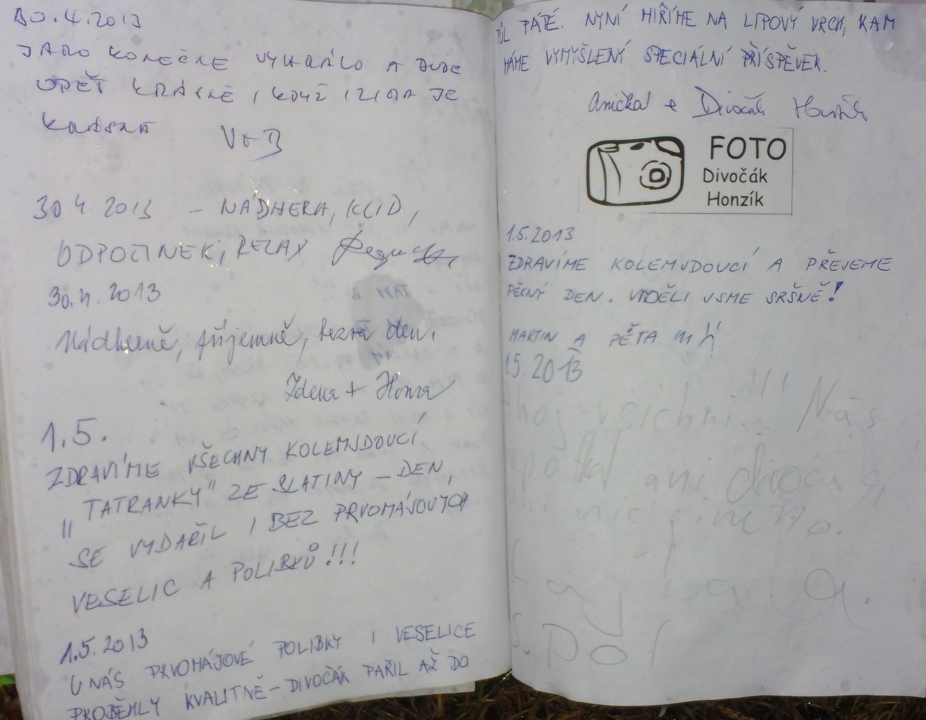 30.4.2013
JARO KONEČNĚ VYHRÁLO A BUDE
OPĚT KRÁSNĚ, I KDYŽ I ZIMA JE
KRÁSNÁ V+B
30.4.2013 – NÁDHERA, KLID,
ODPOČINEK, RELAX
30.4.2013
Nádherně, příjemně, hezký den.
Zdena + Honza
1.5.
ZDRAVÍME VŠECHNY KOLEMJDOUCÍ
"TATRANKY" ZE SLATINY – DEN
SE VYDAŘIL I BEZ PRVOMÁJOVÝCH
VESELIC A POLIBKŮ!!!
1.5.2013
U NÁS PRVOMÁJOVÉ POLIBKY I VESELICE
PROBĚHLY KVALITNĚ – DIVOČÁK PAŘIL AŽ DO
PŮL PÁTÉ. NYNÍ MÍŘÍME NA LIPOVÝ VRCH, KAM
MÁME VYMYŠLENÝ SPECIÁLNÍ PŘÍSPĚVEK.
Anička a Divočák Honzík
FOTO
Divočák
Honzík
1.5.2013
ZDRAVÍME KOLEMJDOUCÍ A PŘEJEME
PĚKNÝ DEN. VIDĚLI JSME SRŠNĚ!
MARTIN A PÉŤA
1.5.2013
Ahoj všichni!!! Nás
nepotkal ani divočák,
ani nic jiného.